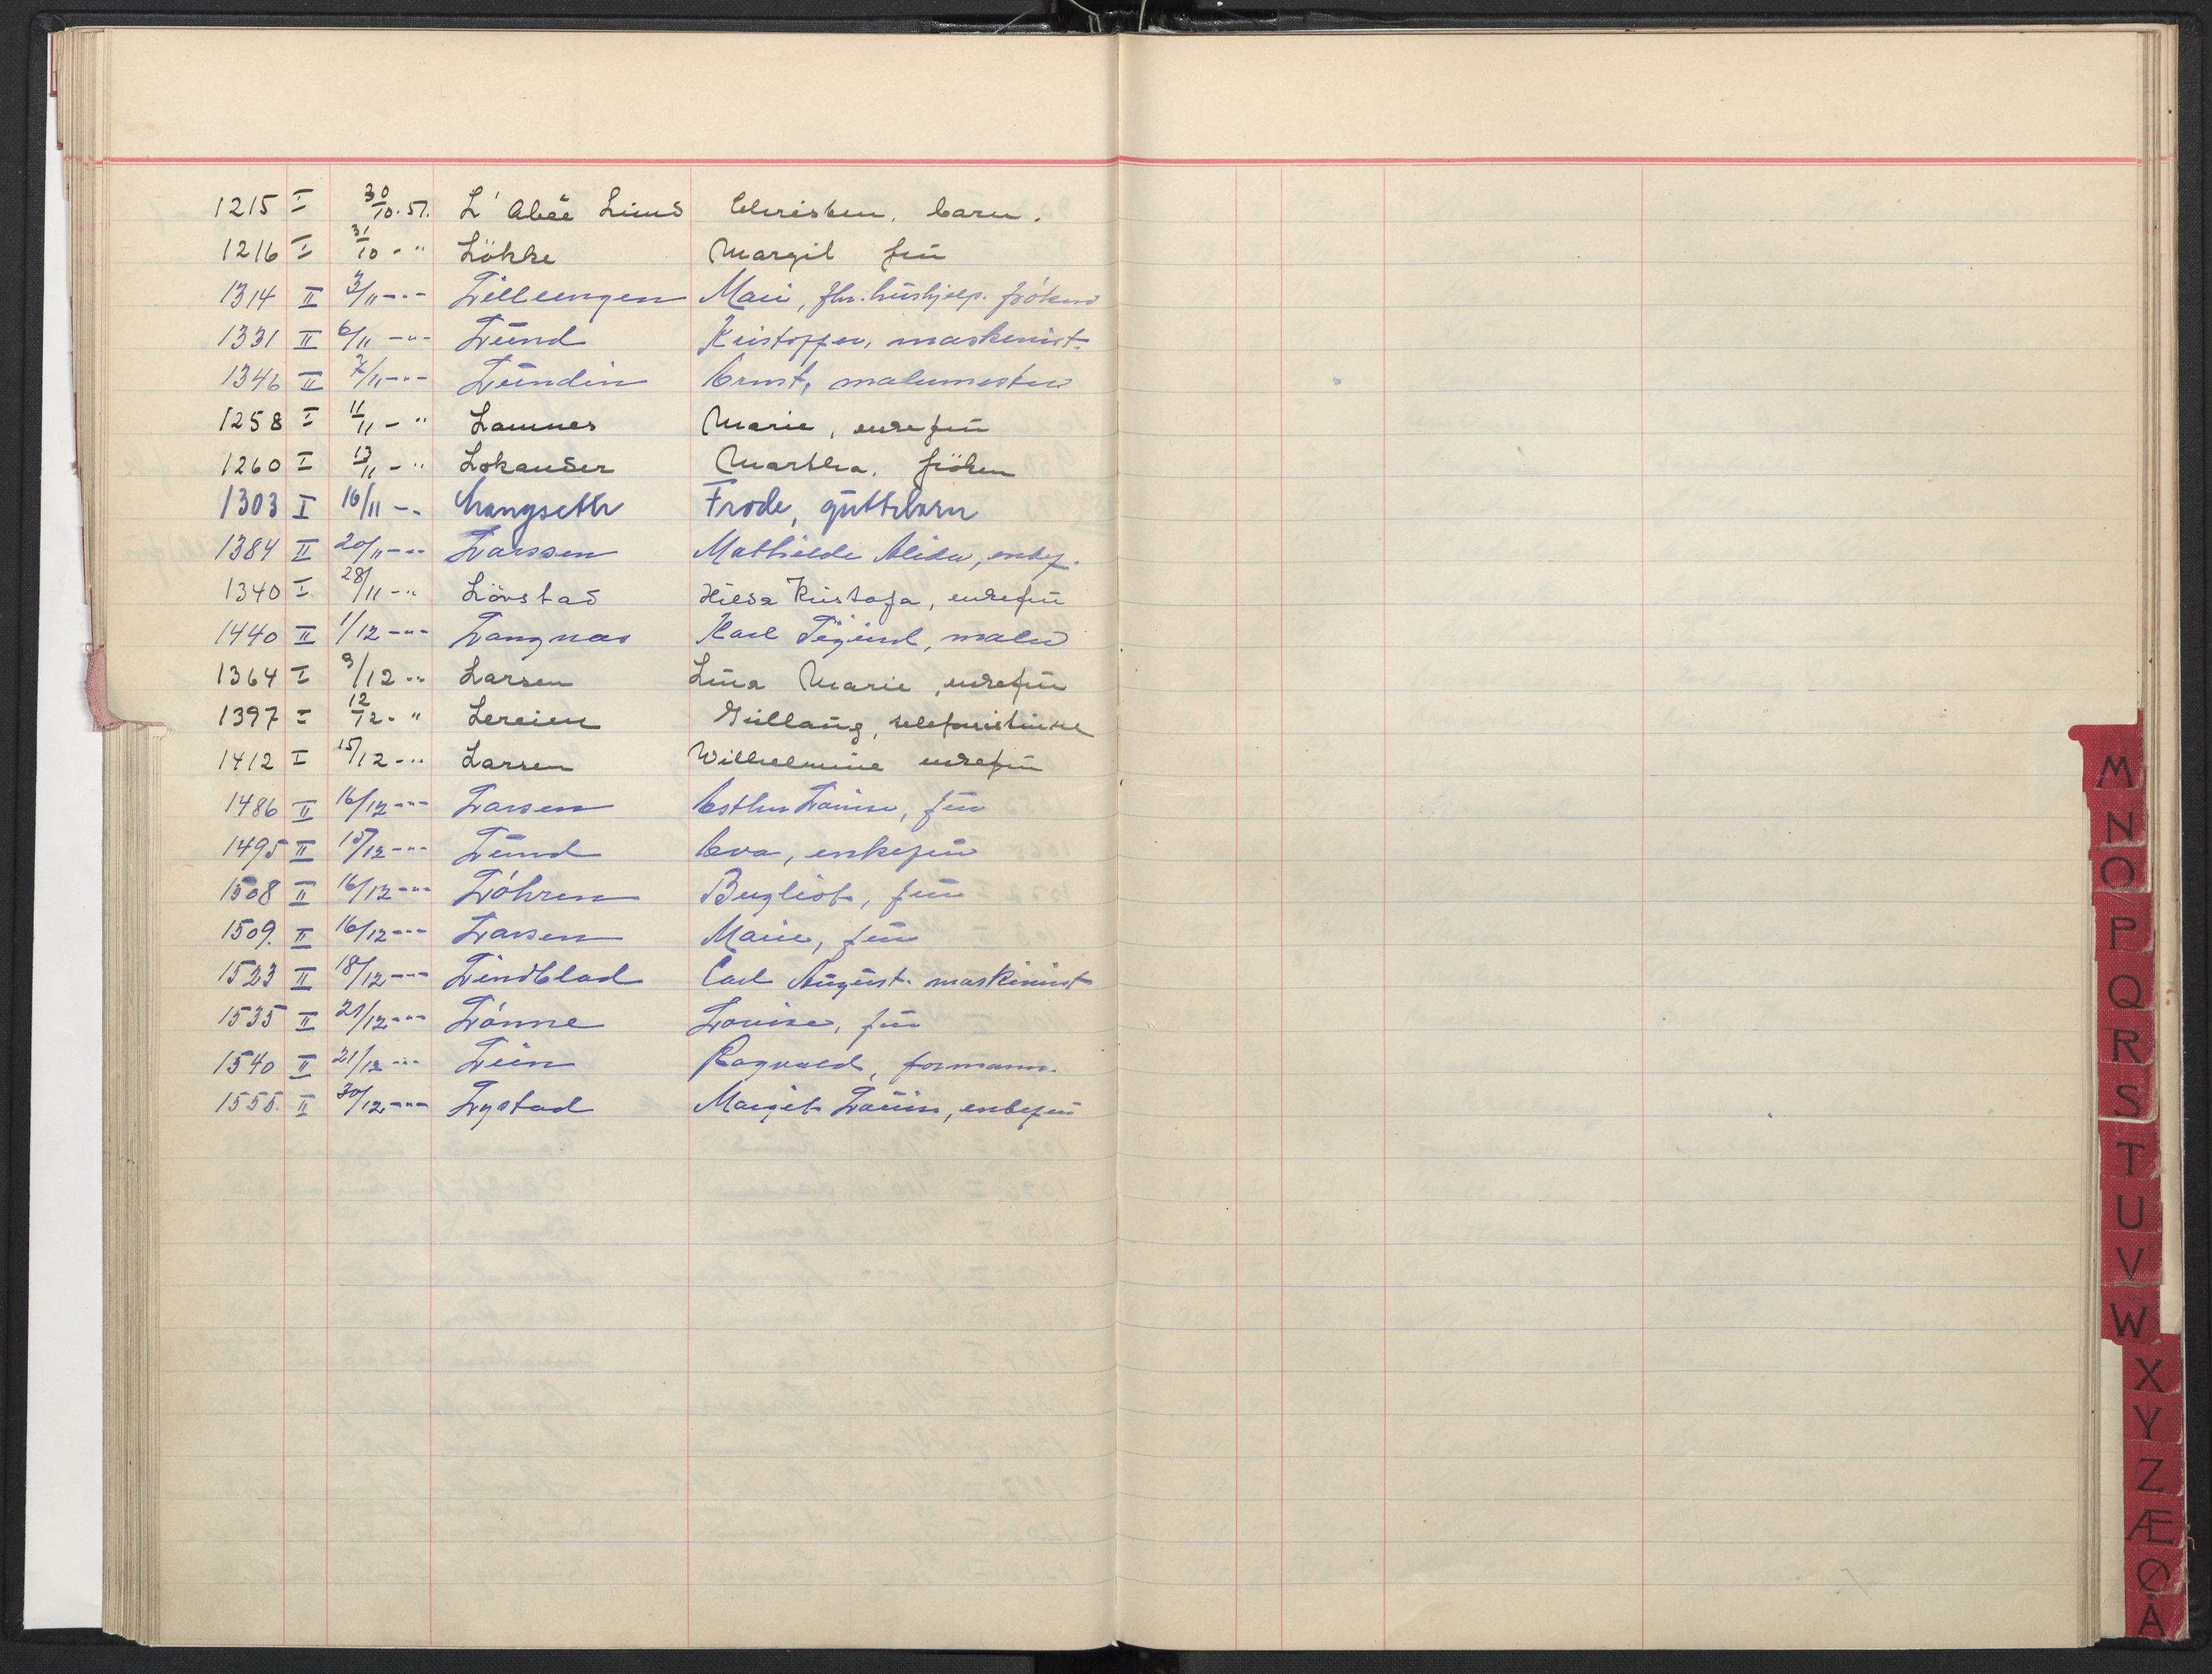 1215 I 30/10.51. L'Abée Lund Christen, barn.
1216 I 31/10 - " Lökke Margit frü
1314 II 3/11 -"- Lillengen Mari, fhv. hüshjelp. fröken
1331 II 6/11 -"- Lünd Kristoffer, maskinist.
1346 II 7/11 -"- Lündin Ernst, malermester
1258 I 11/11 - " Lamnes Marie, enkefrü
1260 I 13/11 - " Lokander Martha. fröken
1303 I 16/11 - " Langseth Frode, güttebarn
1384 II 20/11 -"- Larssen Mathilde Alida, enkef.
1340 I 28/11 - " Lövstad Hilda Kristofa, enkefrü
1440 II 1/12 -"- Langnas Karl, maler
1364 I 9/12 " Larsen Lina Marie, enkefrü
1397 I 12/12 - " Lereien Güllaüg, telefonistinne
1412 I 15/12 - " Larsen Wilhelmine enkefrü
1486 II 16/12 -"- Larsen Esther Loüise, frü
1495 II 15/12 -"- Lünd Eva, enkefrü
1508 II 16/12 -"- Löhren Bergliot, frü
1509. II 16/12 -"- Larsen Marie, frü
1523 II 18/12 -"- Lindblad Carl Aügüst. maskinist
1535 II 21/12 -"- Lönne Lovise, frü
1540 II 21/12 -"- Lien Ragnvald, formann.
1555. II 30/12 -"- Lystad Margit Loüise, enkefrü
M
N
O
P
Q
R
S
T
U
V
W
X
Y
Z
Æ
Ø
Å